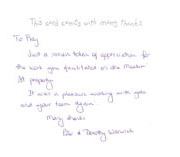 This card comes with many thanks
To Meg
Just a small token of appreciation for
the work you facilitated on the Martin
At property.
It was a pleasure working with you
and your team again.
Many thanks
Pete & Dorothy Warwick